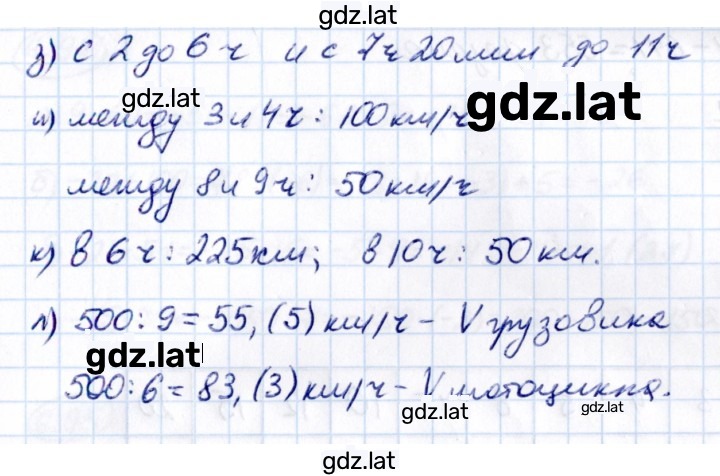 gdz.lat
з) с 2 до 6 ч и с 7 ч 20 мин до 11 ч
gdz.lat
и) между 3 и 4 ч: 100 км/ч
gdz.lat
между 8 и 9 ч: 50 км/ч
к) в 6 ч: 225 км; в 10 ч: 50 км.
л) 500:9=55,(5) км/ч - V грузовика
gdz.lat
500:6=83,(3) км/ч - V мотоцикла.
gdz.lat
gdz.lat
gdz.lat